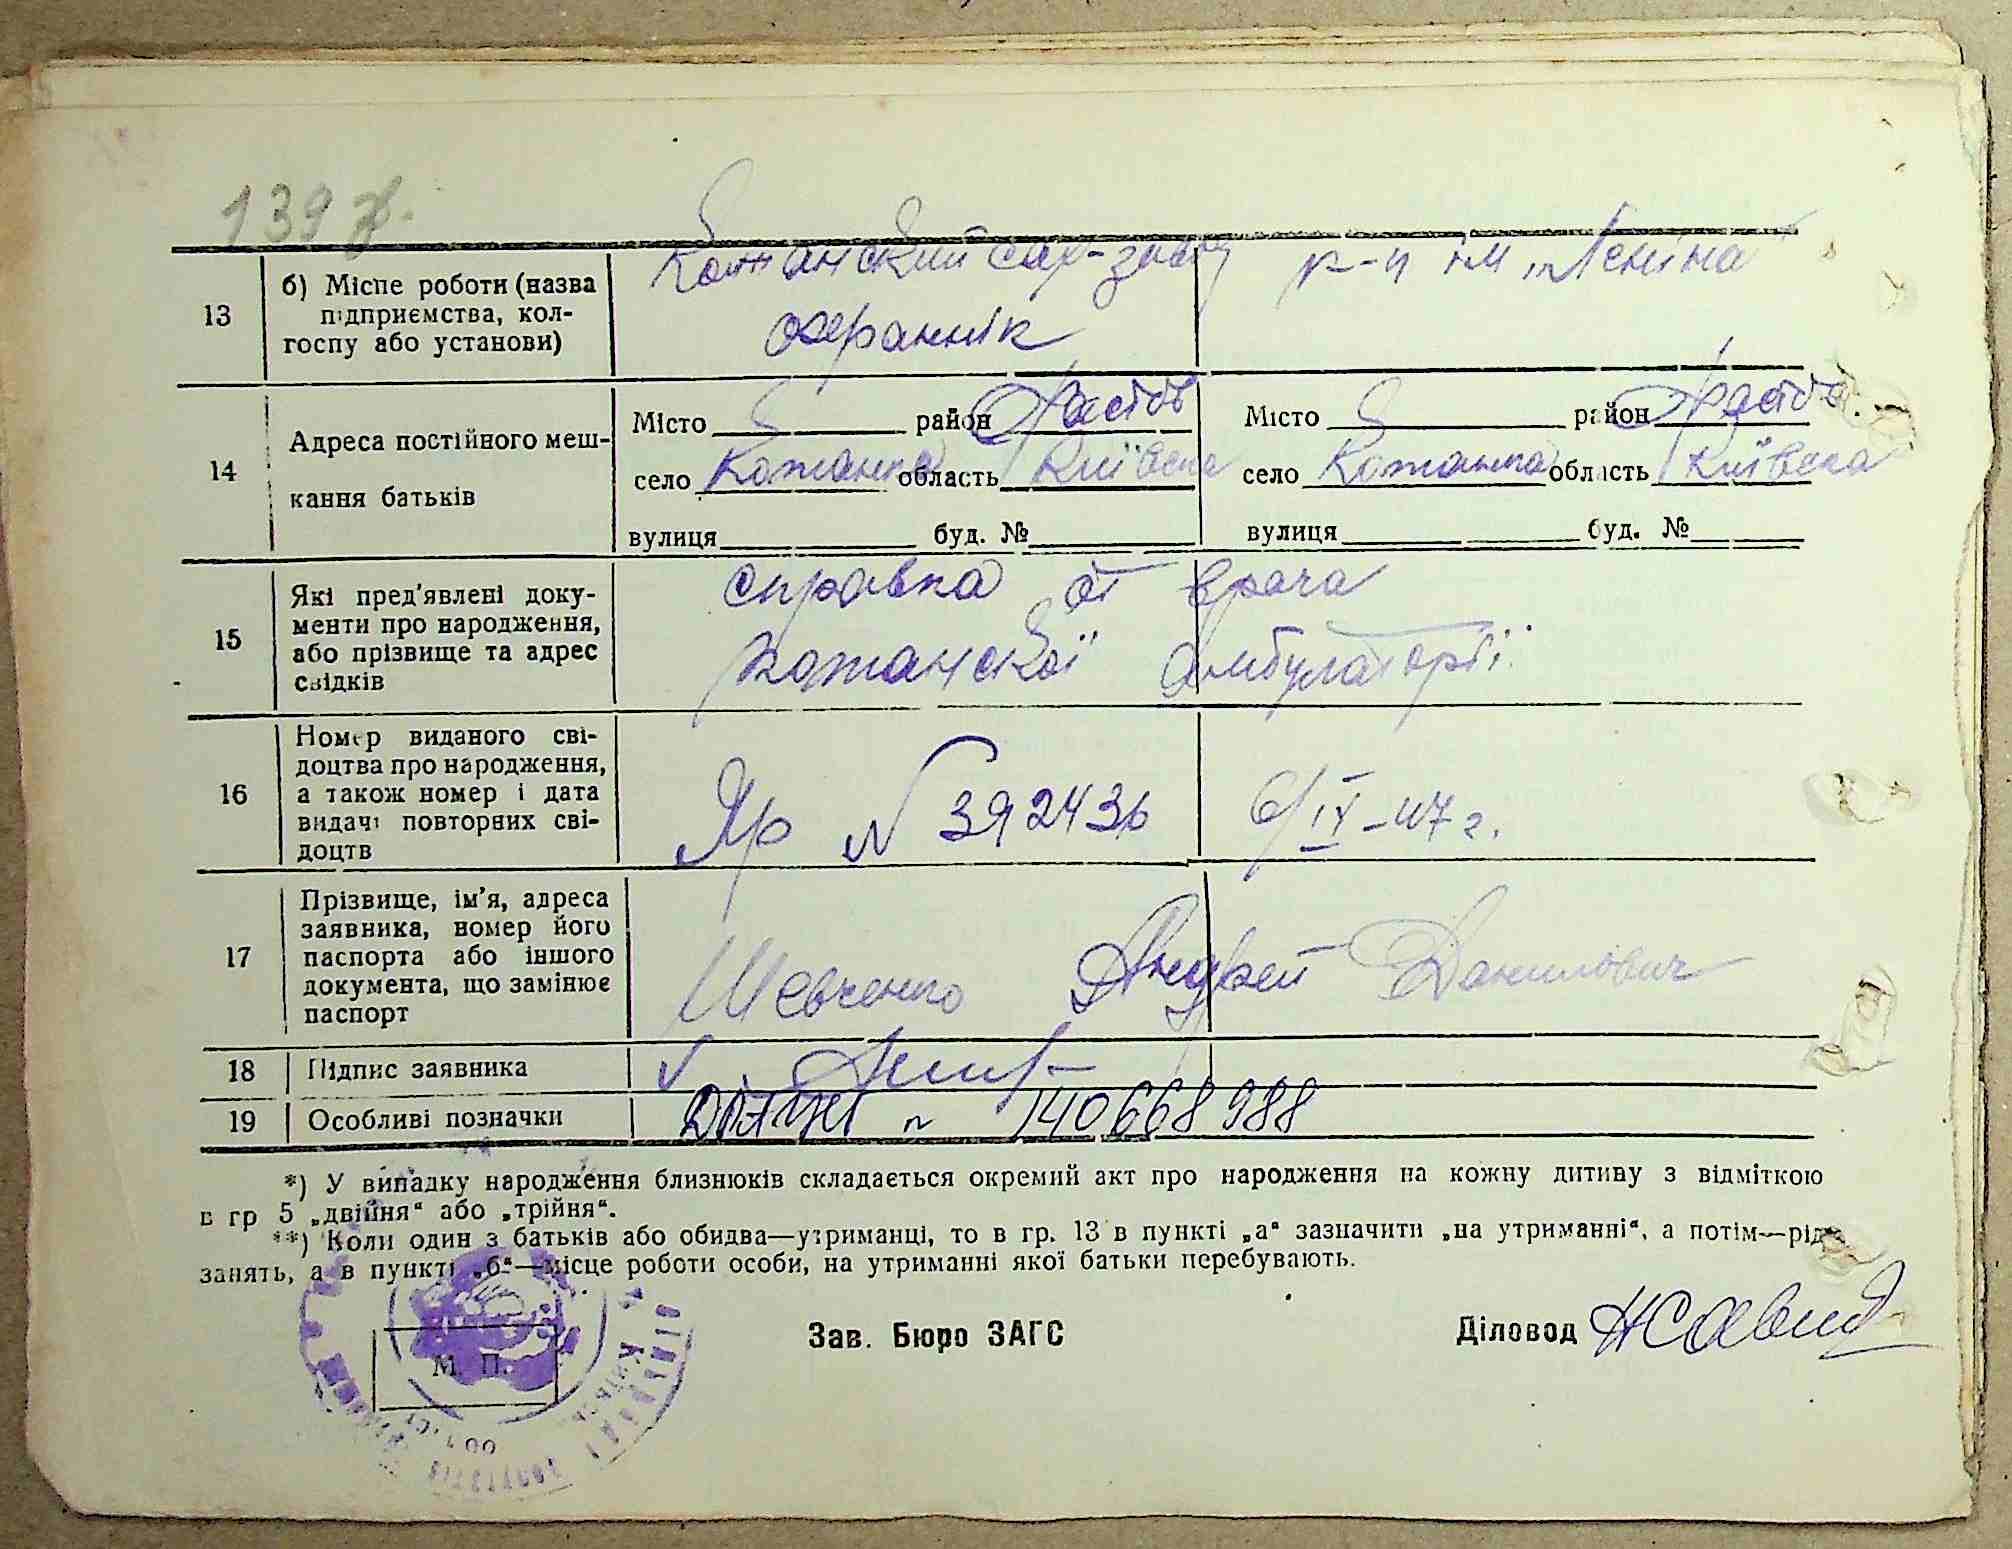 139
13 б) Місце роботи (назва підприємства, колгоспу або установи)
Кожанский сах-завод
охраннік
к-п ім. Леніна
14 Адреса постійного мешкання батьків
Місто район Фастов
село Кожанка область Київска
вулиця буд. №
Місто район Фастов.
село Кожанка область Київска
вулиця буд. №
15 Які пред'явлені документи про народження, або прізвище та адрес свідків
справка от врача
Кожанской амбулаторії
16 Номер виданого свідоцтва про народження, а також номер і дата видачі повторних свідоцтв
Яр N 392436
6/IX-47 г.
17 Прізвище, ім'я, адреса заявника, номер його паспорта або іншого документа, що замінює паспорт
Шевченко Андрей Данилович
18 Підпис заявника
19 Особливі позначки
140668988
*) У випадку народження близнюків складається окремий акт про народження на кожну дитину з відміткою
в гр 5 „двійня“ або „трійня“.
**) Коли один з батьків або обидва—утриманці, то в гр. 13 в пункті „а“ зазначити „на утриманні“, а потім—рід
занять, а в пункті „б“—місце роботи особи, на утриманні якої батьки перебувають.
Зав. Бюро ЗАГС Діловод
М. П.